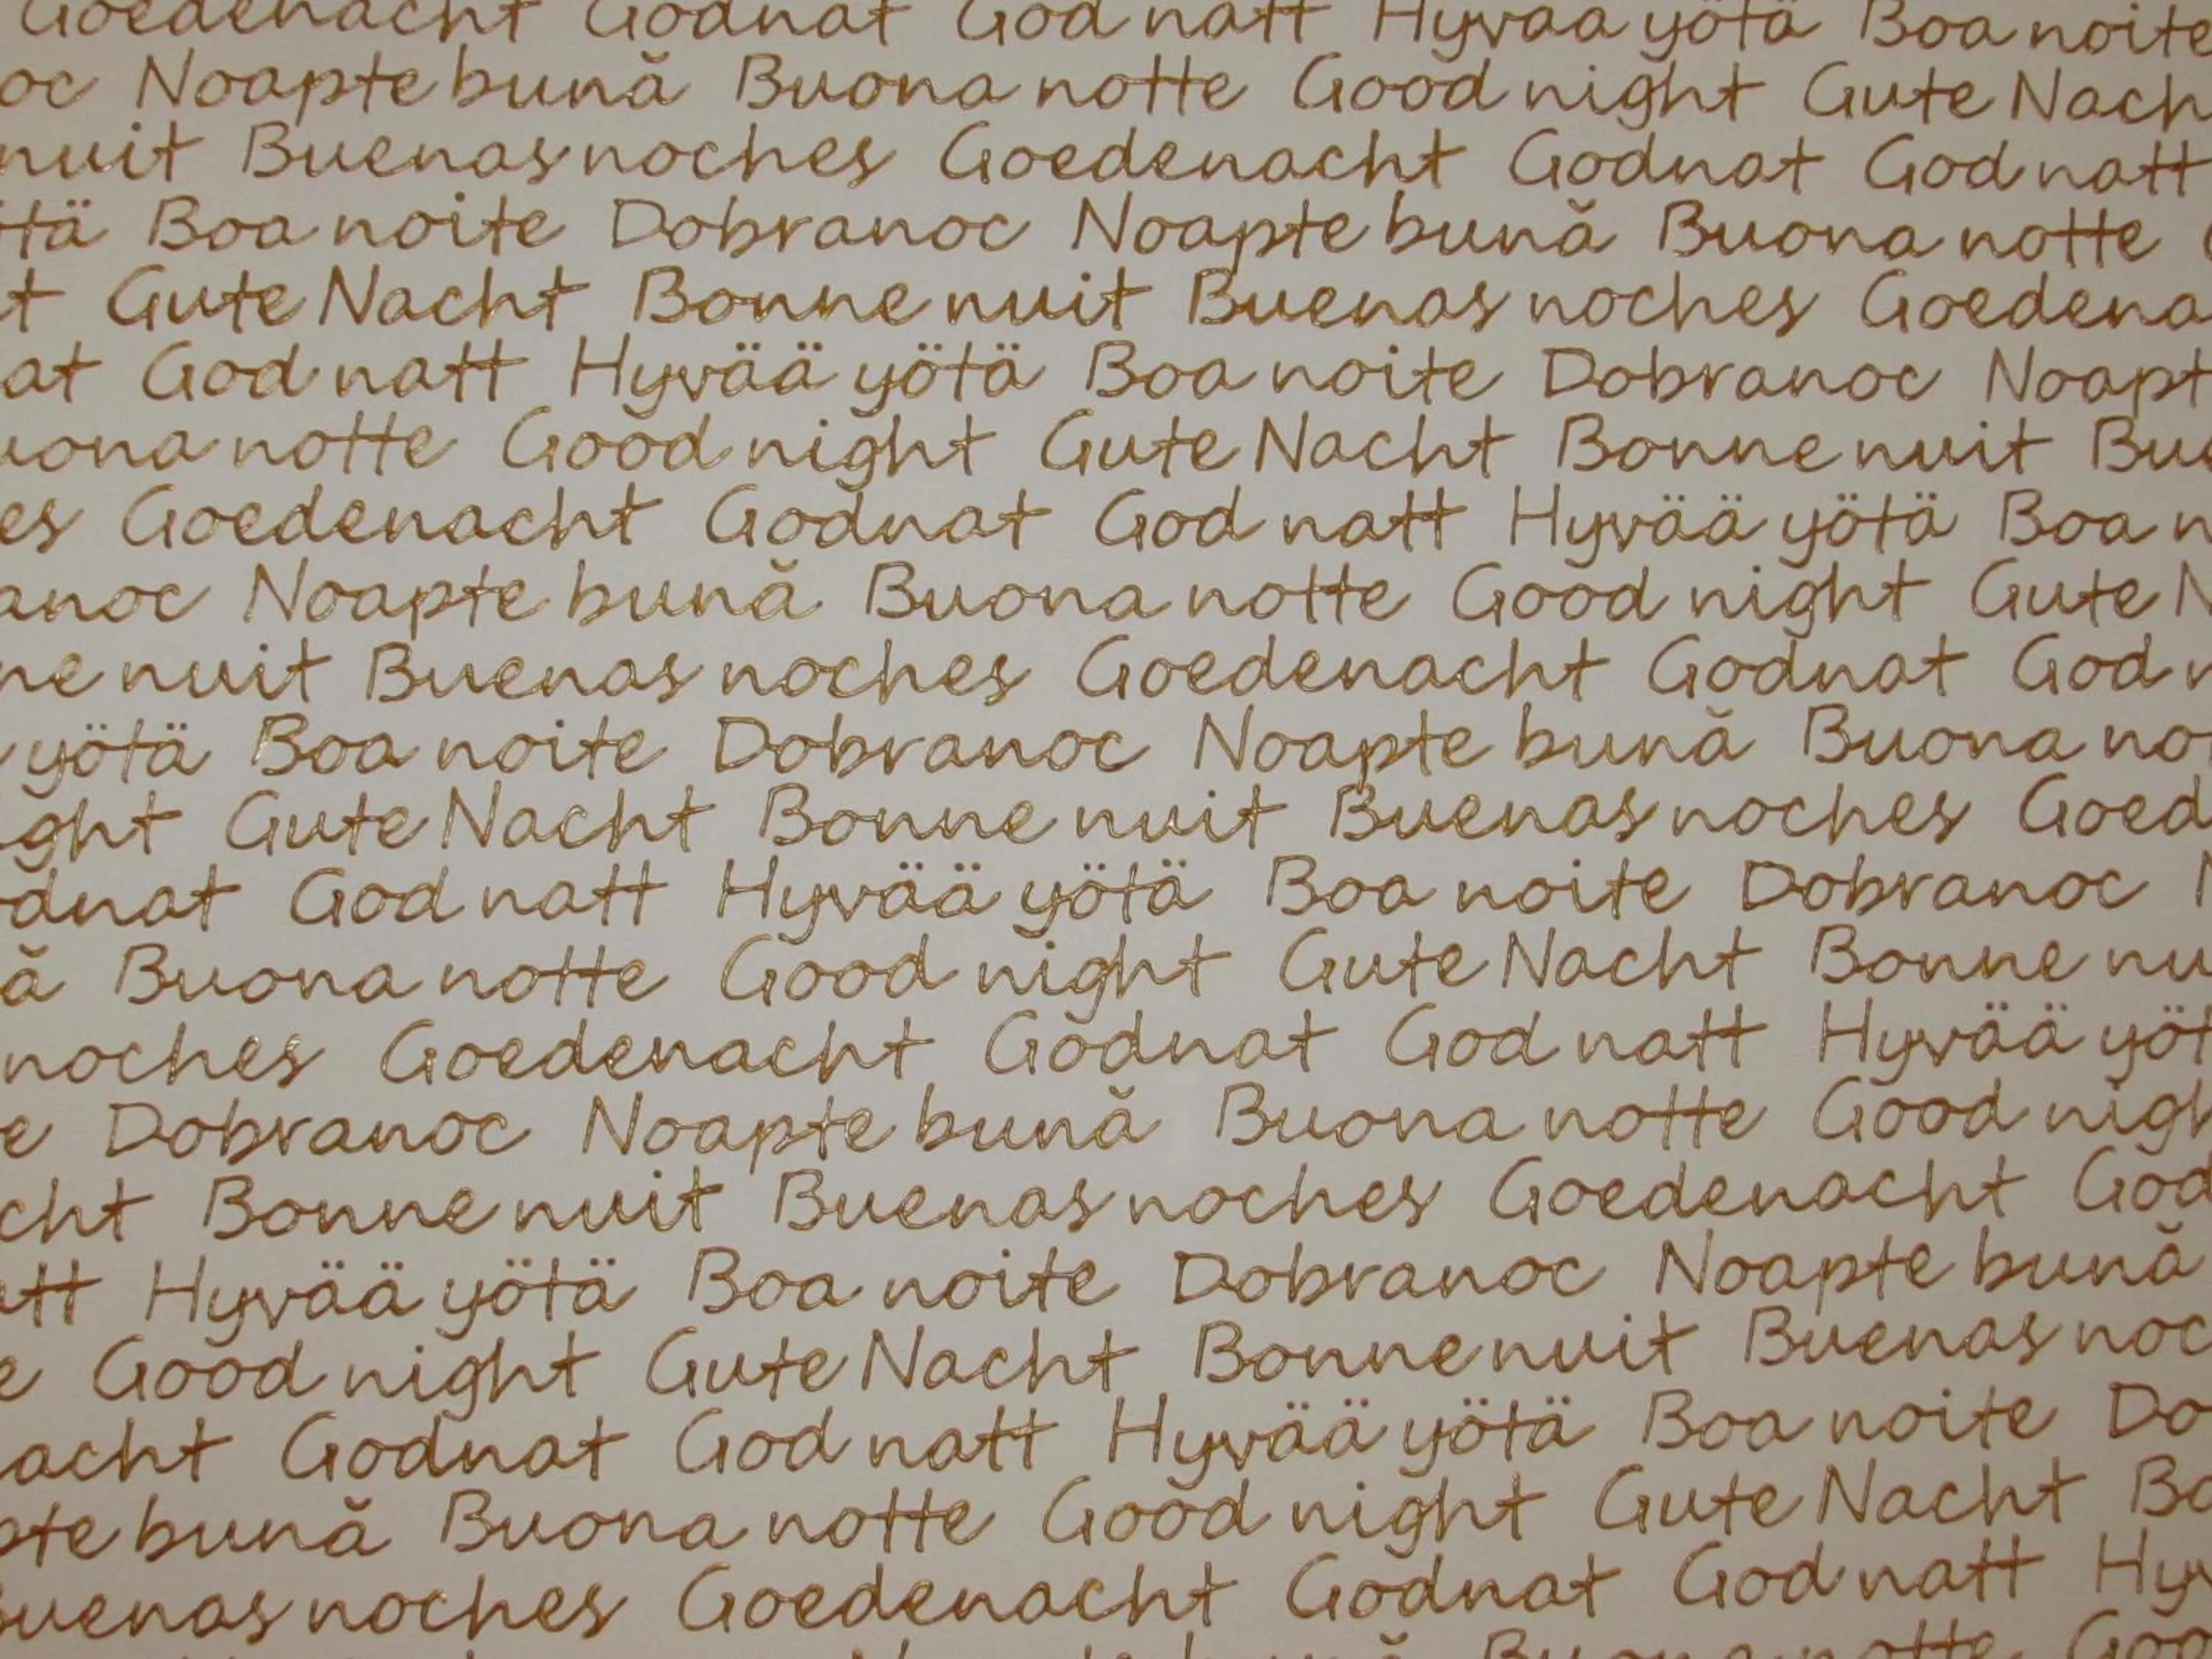 Goedenacht Godnat God natt Hyvää yötä Boa noite
oc Noapte bună Buona notte Good night Gute Nach
nuit Buenas noches Goedenacht Godnat God natt
tä Boa noite Dobranoc Noapte bună Buona notte
t Gute Nacht Bonne nuit Buenas noches Goedena
at God natt Hyvää yötä Boa noite Dobranoc Noapt
uona notte Good night Gute Nacht Bonne nuit Bue
es Goedenacht Godnat God natt Hyvää yötä Boa n
anoc Noapte bună Buona notte Good night Gute N
ne nuit Buenas noches Goedenacht Godnat God n
yötä Boa noite Dobranoc Noapte bună Buona no
ght Gute Nacht Bonne nuit Buenas noches Goed
dnat God natt Hyvää yötä Boa noite Dobranoc N
ă Buona notte Good night Gute Nacht Bonne nu
noches Goedenacht Godnat God natt Hyvää yöt
e Dobranoc Noapte bună Buona notte Good nigh
cht Bonne nuit Buenas noches Goedenacht God
att Hyvää yötä Boa noite Dobranoc Noapte bună
e Good night Gute Nacht Bonne nuit Buenas noc
acht Godnat God natt Hyvää yötä Boa noite Do
pte bună Buona notte Good night Gute Nacht Bo
uenas noches Goedenacht Godnat God natt Hyv
Buona notte Goo